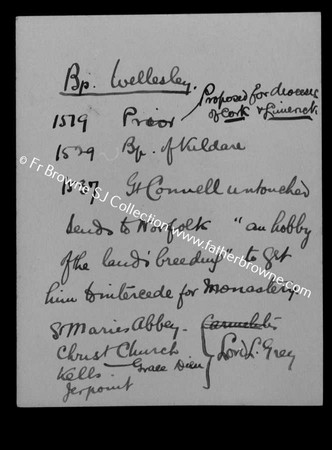 Bp. Wellesley.
Proposed for diocese
of Cork & Limerick
1519 Prior
1529 Bp. of Kildare
1537 Gt Connell untouched
sends to Norfolk "an hobby
of the land's breeding" to get
him to intercede for Monastery
St Maries Abbey - Carmelites
Christ Church Lord L. Grey
Kells - Grace Dieu
Jerpoint
© Fr Browne SJ Collection www.fatherbrowne.com